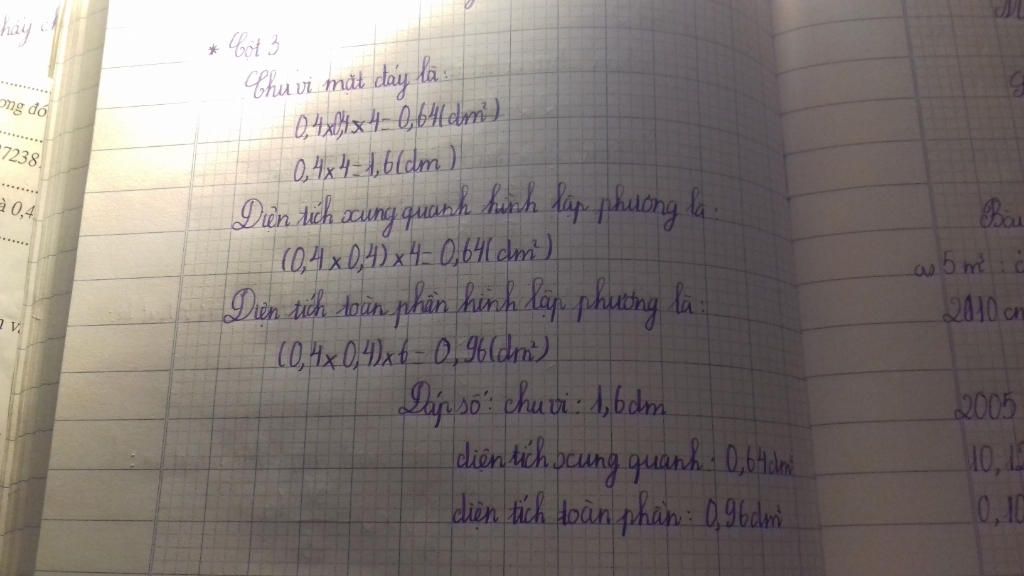 hãy ch
ong đó
7238
à 0,4
n v.
* Cột 3
Chu vi mặt đáy là:
0,4x0,4x4=0,64(dm²)
0,4x4=1,6(dm)
Diện tích xung quanh hình lập phương là:
(0,4x0,4)x4=0,64(dm²)
Diện tích toàn phần hình lập phương là:
(0,4x0,4)x6=0,96(dm²)
Đáp số: chu vi: 1,6dm
diện tích xung quanh: 0,64dm²
diện tích toàn phần: 0,96dm²
5m²
2010 cm
2005
10,12
0,10